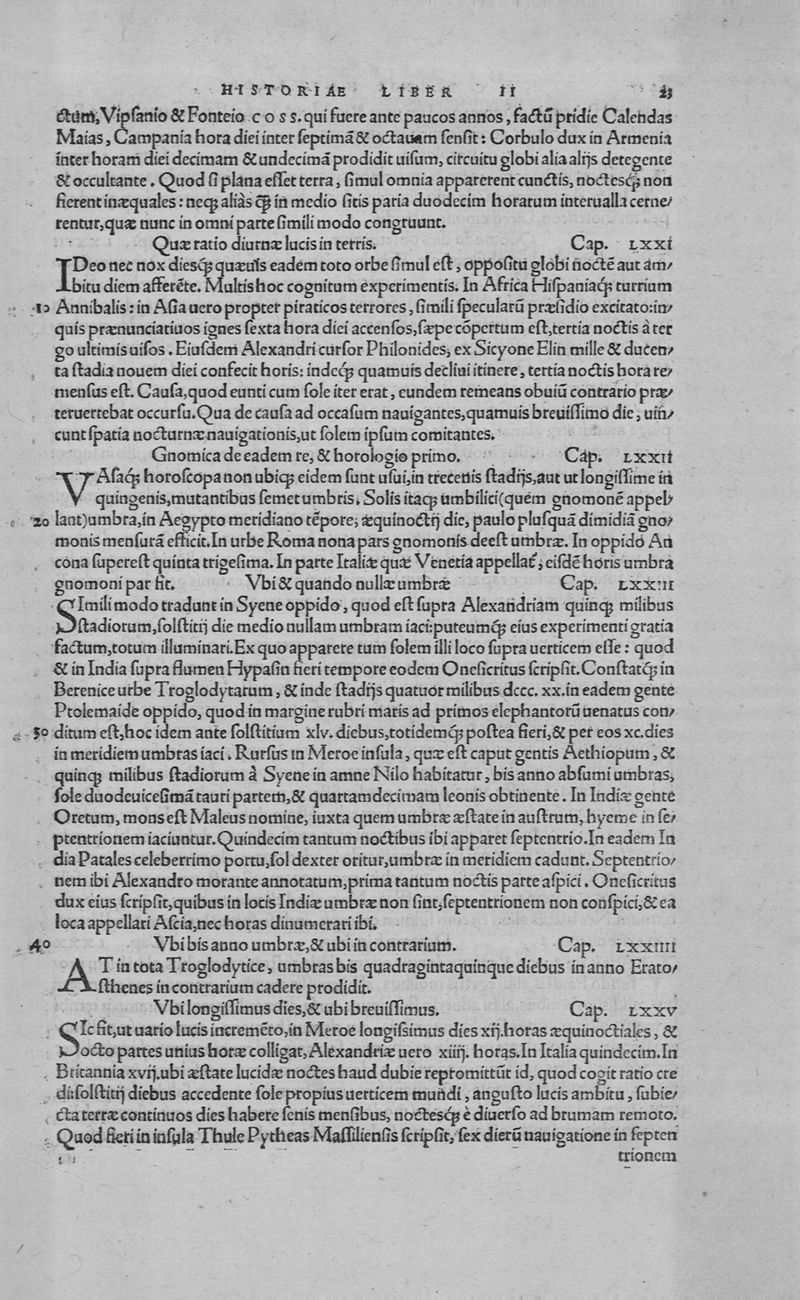 HISTORIAE LIBER II 23
ctum, Vipsanio & Fonteio coss. qui fuere ante paucos annos, factũ pridie Calendas
Maias, Campania hora diei inter septimã & octauam sensit: Corbulo dux in Armenia
inter horam diei decimam & undecimã prodidit uisum, circuitu globi alia alijs detegente
& occultante. Quod si plana esset terra, simul omnia apparerent cunctis, noctesq; non
fierent inæquales: neq; aliàs q̃ in medio sitis paria duodecim horarum interualla cerne/
rentur, quæ nunc in omni parte simili modo congruunt.
Quæ ratio diurnæ lucis in terris. Cap. LXXI
IDeo nec nox diesq; quæuis eadem toto orbe simul est, oppositu globi noctẽ aut am/
bitu diem afferẽte. Multis hoc cognitum experimentis. In Africa Hispaniaq; turrium
10 Annibalis: in Asia uero propter piraticos terrores, simili specularũ præsidio excitato: in/
quis prænunciatiuos ignes sexta hora diei accensos, sæpe cõpertum est, tertia noctis à ter
go ultimis uisos. Eiusdem Alexandri cursor Philonides, ex Sicyone Elin mille & ducen/
ta stadia nouem diei confecit horis: indeq; quamuis decliui itinere, tertia noctis hora re/
mensus est. Causa, quod eunti cum sole iter erat, eundem remeans obuiũ contrario præ/
teruertebat occursu. Qua de causa ad occasum nauigantes, quamuis breuissimo die, uin/
cunt spatia nocturnæ nauigationis, ut solem ipsum comitantes.
Gnomica de eadem re, & horologio primo. Cap. LXXII
VAsaq; horoscopa non ubiq; eidem sunt usui, in trecenis stadijs, aut ut longissime in
quingenis, mutantibus semet umbris. Solis itaq; umbilici (quem gnomonẽ appel/
20 lant) umbra, in Aegypto meridiano tẽpore, æquinoctij die, paulo plusquã dimidiã gno/
monis mensurã efficit. In urbe Roma nona pars gnomonis deest umbræ. In oppido An
cona superest quinta trigesima. In parte Italiæ quæ Venetia appellat̃, eisdẽ horis umbra
gnomoni par fit. Vbi & quando nullæ umbræ Cap. LXXIII
SImili modo tradunt in Syene oppido, quod est supra Alexandriam quinq; milibus
stadiorum, solstitij die medio nullam umbram iaci: puteumq; eius experimenti gratia
factum, totum illuminari. Ex quo apparere tum solem illi loco supra uerticem esse: quod
& in India supra flumen Hypasin fieri tempore eodem Onesicritus scripsit. Constatq; in
Berenice urbe Troglodytarum, & inde stadijs quatuor milibus dccc. xx. in eadem gente
Ptolemaide oppido, quod in margine rubri maris ad primos elephantorũ uenatus con/
30 ditum est, hoc idem ante solstitium xlv. diebus, totidemq; postea fieri, & per eos xc. dies
in meridiem umbras iaci. Rursus in Meroe insula, quæ est caput gentis Aethiopum, &
quinq; milibus stadiorum à Syene in amne Nilo habitatur, bis anno absumi umbras,
sole duodeuicesimã tauri partem, & quartamdecimam leonis obtinente. In Indiæ gente
Oretum, mons est Maleus nomine, iuxta quem umbræ æstate in austrum, hyeme in se/
ptentrionem iaciuntur. Quindecim tantum noctibus ibi apparet septentrio. In eadem In
dia Patales celeberrimo portu, sol dexter oritur, umbræ in meridiem cadunt. Septentrio/
nem ibi Alexandro morante annotatum, prima tantum noctis parte aspici. Onesicritus
dux eius scripsit, quibus in locis Indiæ umbræ non sint, septentrionem non conspici, & ea
loca appellari Ascia, nec horas dinumerari ibi.
40 Vbi bis anno umbræ, & ubi in contrarium. Cap. LXXIIII
AT in tota Troglodytice, umbras bis quadragintaquinque diebus in anno Erato/
sthenes in contrarium cadere prodidit.
Vbi longissimus dies, & ubi breuissimus. Cap. LXXV
SIc fit, ut uario lucis incremẽto, in Meroe longissimus dies xij. horas æquinoctiales, &
octo partes unius horæ colligat, Alexandriæ uero xiiij. horas. In Italia quindecim. In
Britannia xvij. ubi æstate lucidæ noctes haud dubie repromittũt id, quod cogit ratio cre
di: solstitij diebus accedente sole propius uerticem mundi, angusto lucis ambitu, subie/
cta terræ continuos dies habere senis mensibus, noctesq; è diuerso ad brumam remoto.
Quod fieri in insula Thule Pytheas Massiliensis scripsit, sex dierũ nauigatione in septen
trionem